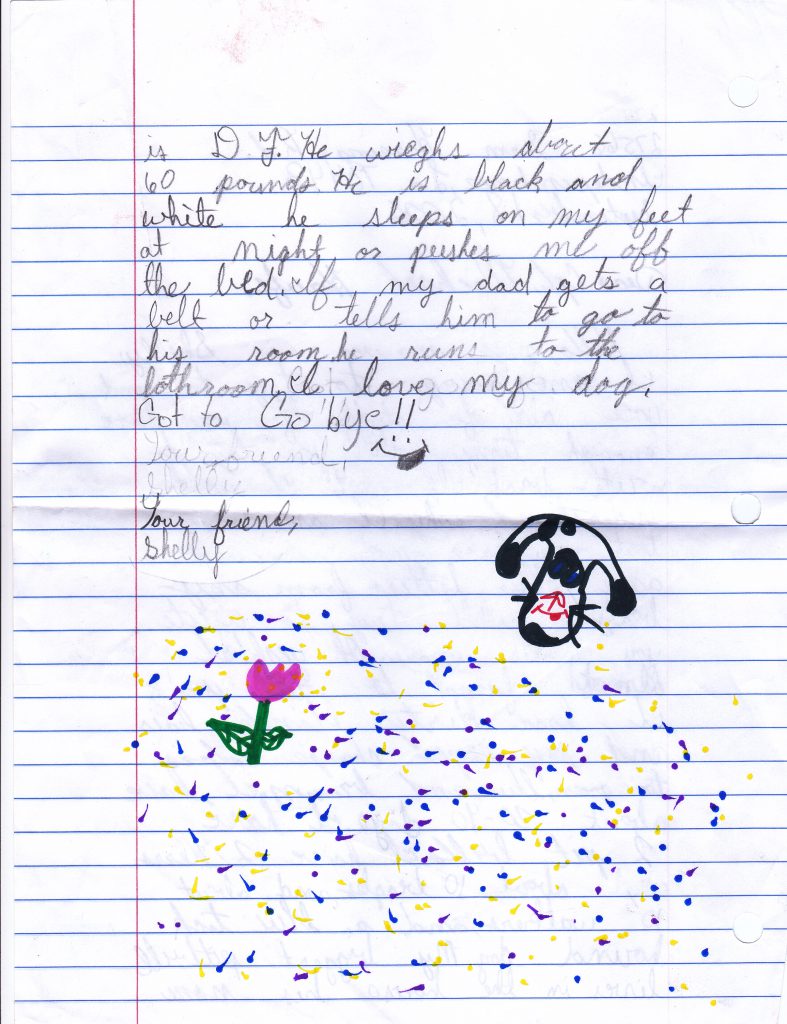 is D.J. He wieghs about
60 pounds. He is black and
white he sleeps on my feet
at night or pushes me off
the bed. If my dad gets a
belt or tells him to go to
his room he runs to the
bathroom. I love my dog.
Got to Go bye!!
Your friend,
Shelly
Your friend,
Shelly